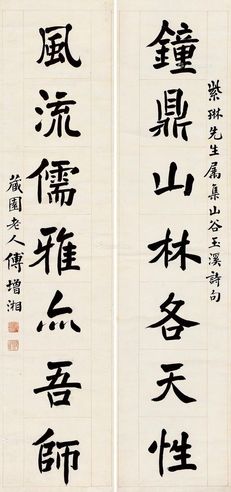 紫琳先生属集山谷玉溪詩句
鐘鼎山林各天性
風流儒雅亦吾師
藏園老人傅增湘